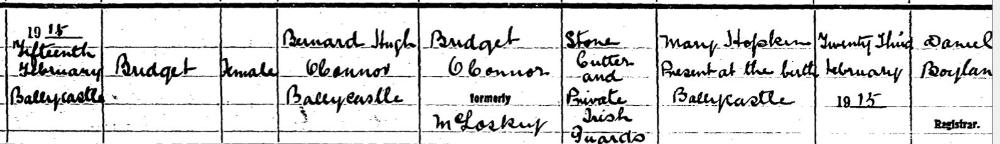 1915
Fifteenth
February
Ballycastle
Bridget
Female
Bernard Hugh
O'Connor
Ballycastle
Bridget
O'Connor
formerly
McLoskey
Stone
Cutter
and
Private
Irish
Guards
Mary Hopkin
Present at the birth
Ballycastle
Twenty Third
February
1915
Daniel
Boylan
Registrar.